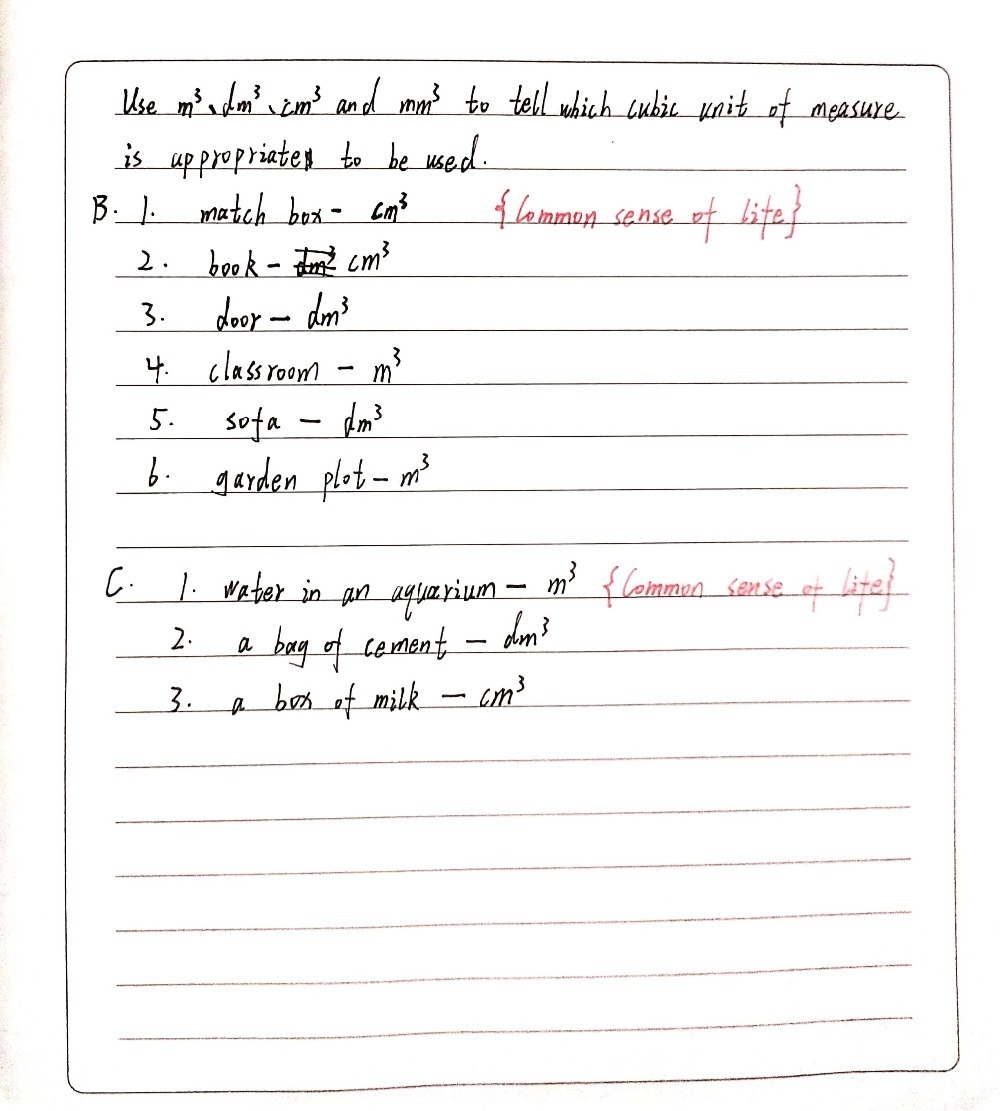 Use m³、dm³、cm³ and mm³ to tell which cubic unit of measure
is appropriate to be used.
B. 1. match box - cm³ {Common sense of life}
2. book - dm³ cm³
3. door - dm³
4. classroom - m³
5. sofa - dm³
6. garden plot - m³
C. 1. water in an aquarium - m³ {Common sense of life}
2. a bag of cement - dm³
3. a box of milk - cm³